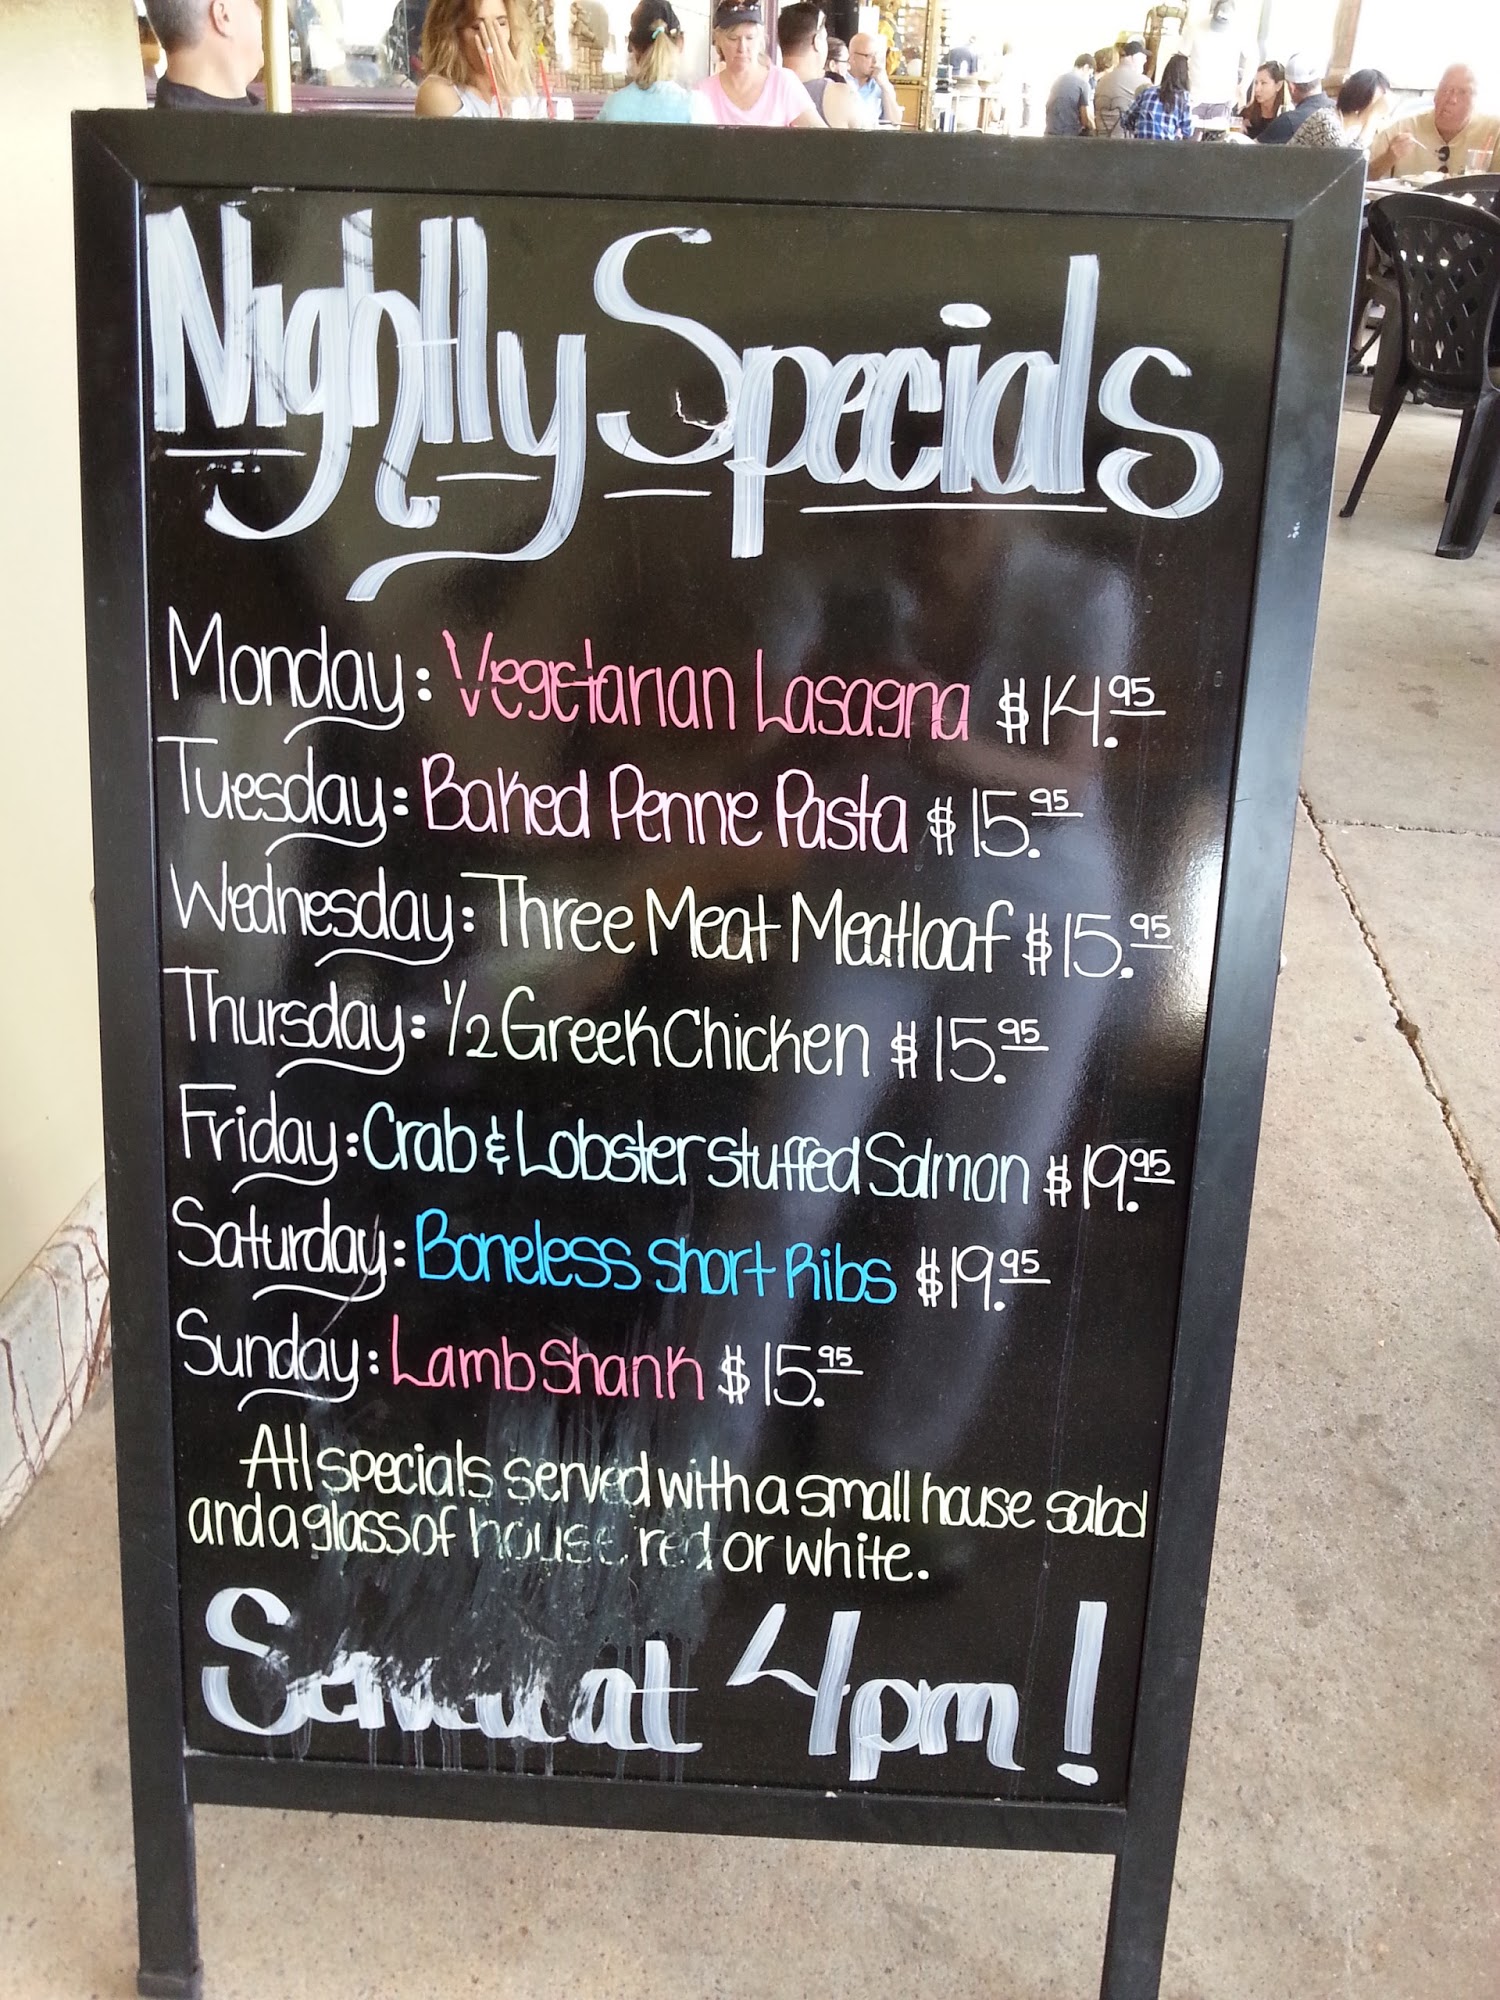 Nightly Specials
Monday: Vegetarian Lasagna $14.95
Tuesday: Baked Penne Pasta $15.95
Wednesday: Three Meat Meatloaf $15.95
Thursday: 1/2 Greek Chicken $15.95
Friday: Crab & Lobster stuffed Salmon $19.95
Saturday: Boneless Short Ribs $19.95
Sunday: Lamb Shank $15.95
All specials served with a small house salad
and a glass of house red or white.
Served at 4pm!